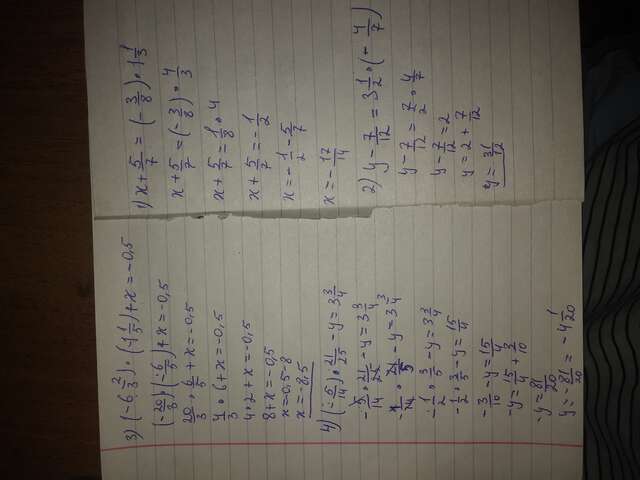 3) (-6 2/3) • (-1 1/5) + x = -0,5
(-20/3) • (-6/5) + x = -0,5
20/3 • 6/5 + x = -0,5
4/3 • 6 + x = -0,5
4 • 2 + x = -0,5
8 + x = -0,5
x = -0,5 - 8
x = -8,5
4) (-5/14) • 21/25 - y = 3 3/4
-5/14 • 21/25 - y = 3 3/4
-1/14 • 21/5 - y = 3 3/4
-1/2 • 3/5 - y = 3 3/4
-1/2 • 3/5 - y = 15/4
-3/10 - y = 15/4
-y = 15/4 + 3/10
-y = 81/20
y = -81/20 = -4 1/20
1) x + 5/7 = (-3/8) • 1 1/3
x + 5/7 = (-3/8) • 4/3
x + 5/7 = 1/8 • 4
x + 5/7 = -1/2
x = -1/2 - 5/7
x = -17/14
2) y - 7/12 = 3 1/2 • (-4/7)
y - 7/12 = 7/2 • 4/7
y - 7/12 = 2
y = 2 + 7/12
y = 31/12